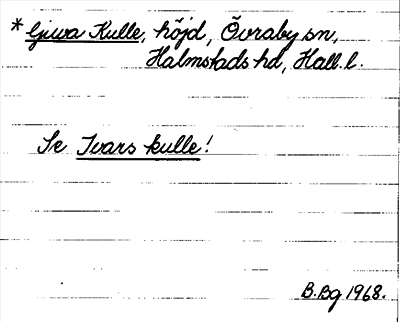 * ljuva Kulle, höjd, Övraby sn,
Halmstads hd, Hall. l.
Se Ivars kulle!
B.Bg 1968.